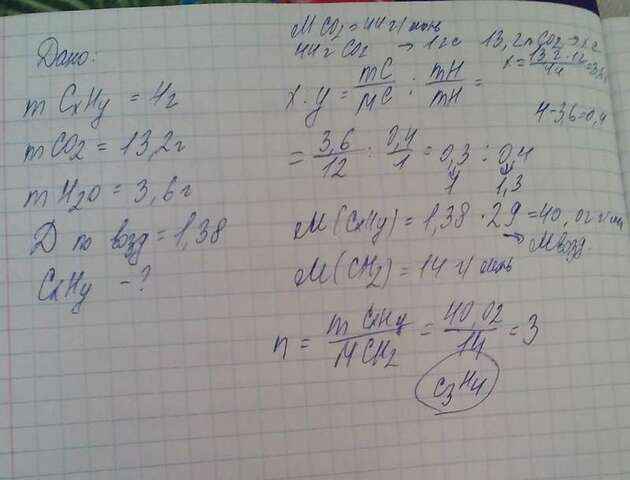 Дано:
m CxHy = 4г
m CO2 = 13,2г
m H2O = 3,6г
Д по возд = 1,38
CxHy - ?
M CO2 = 44 г/моль
44 г CO2 → 12 C 13,2 г CO2 → x C
x = 13,2 · 12 / 44 = 3,6
4 - 3,6 = 0,4
x · y = mC / MC : mH / mH =
= 3,6 / 12 : 0,4 / 1 = 0,3 : 0,4
1 1,3
M (CxHy) = 1,38 · 29 = 40,02 г/моль
→ M возд.
M (CH2) = 14 г/моль
n = m CxHy / M CH2 = 40,02 / 14 = 3
C3H4